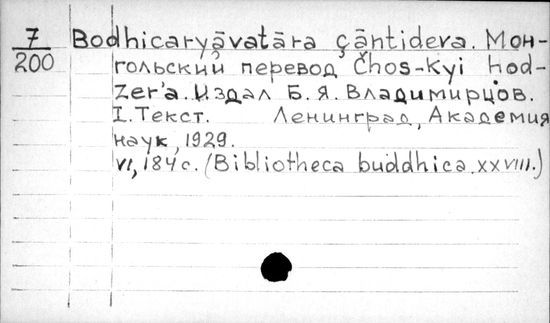 7/200 Bodhicaryāvatāra çāntideva. Мон-
гольский перевод Čhos-Kyi hod-
Zer'a. Издал Б. Я. Владимирцов.
I. Текст. Ленинград, Академия
наук, 1929.
VI, 184 с. (Bibliotheca buddhica. XXVIII.)